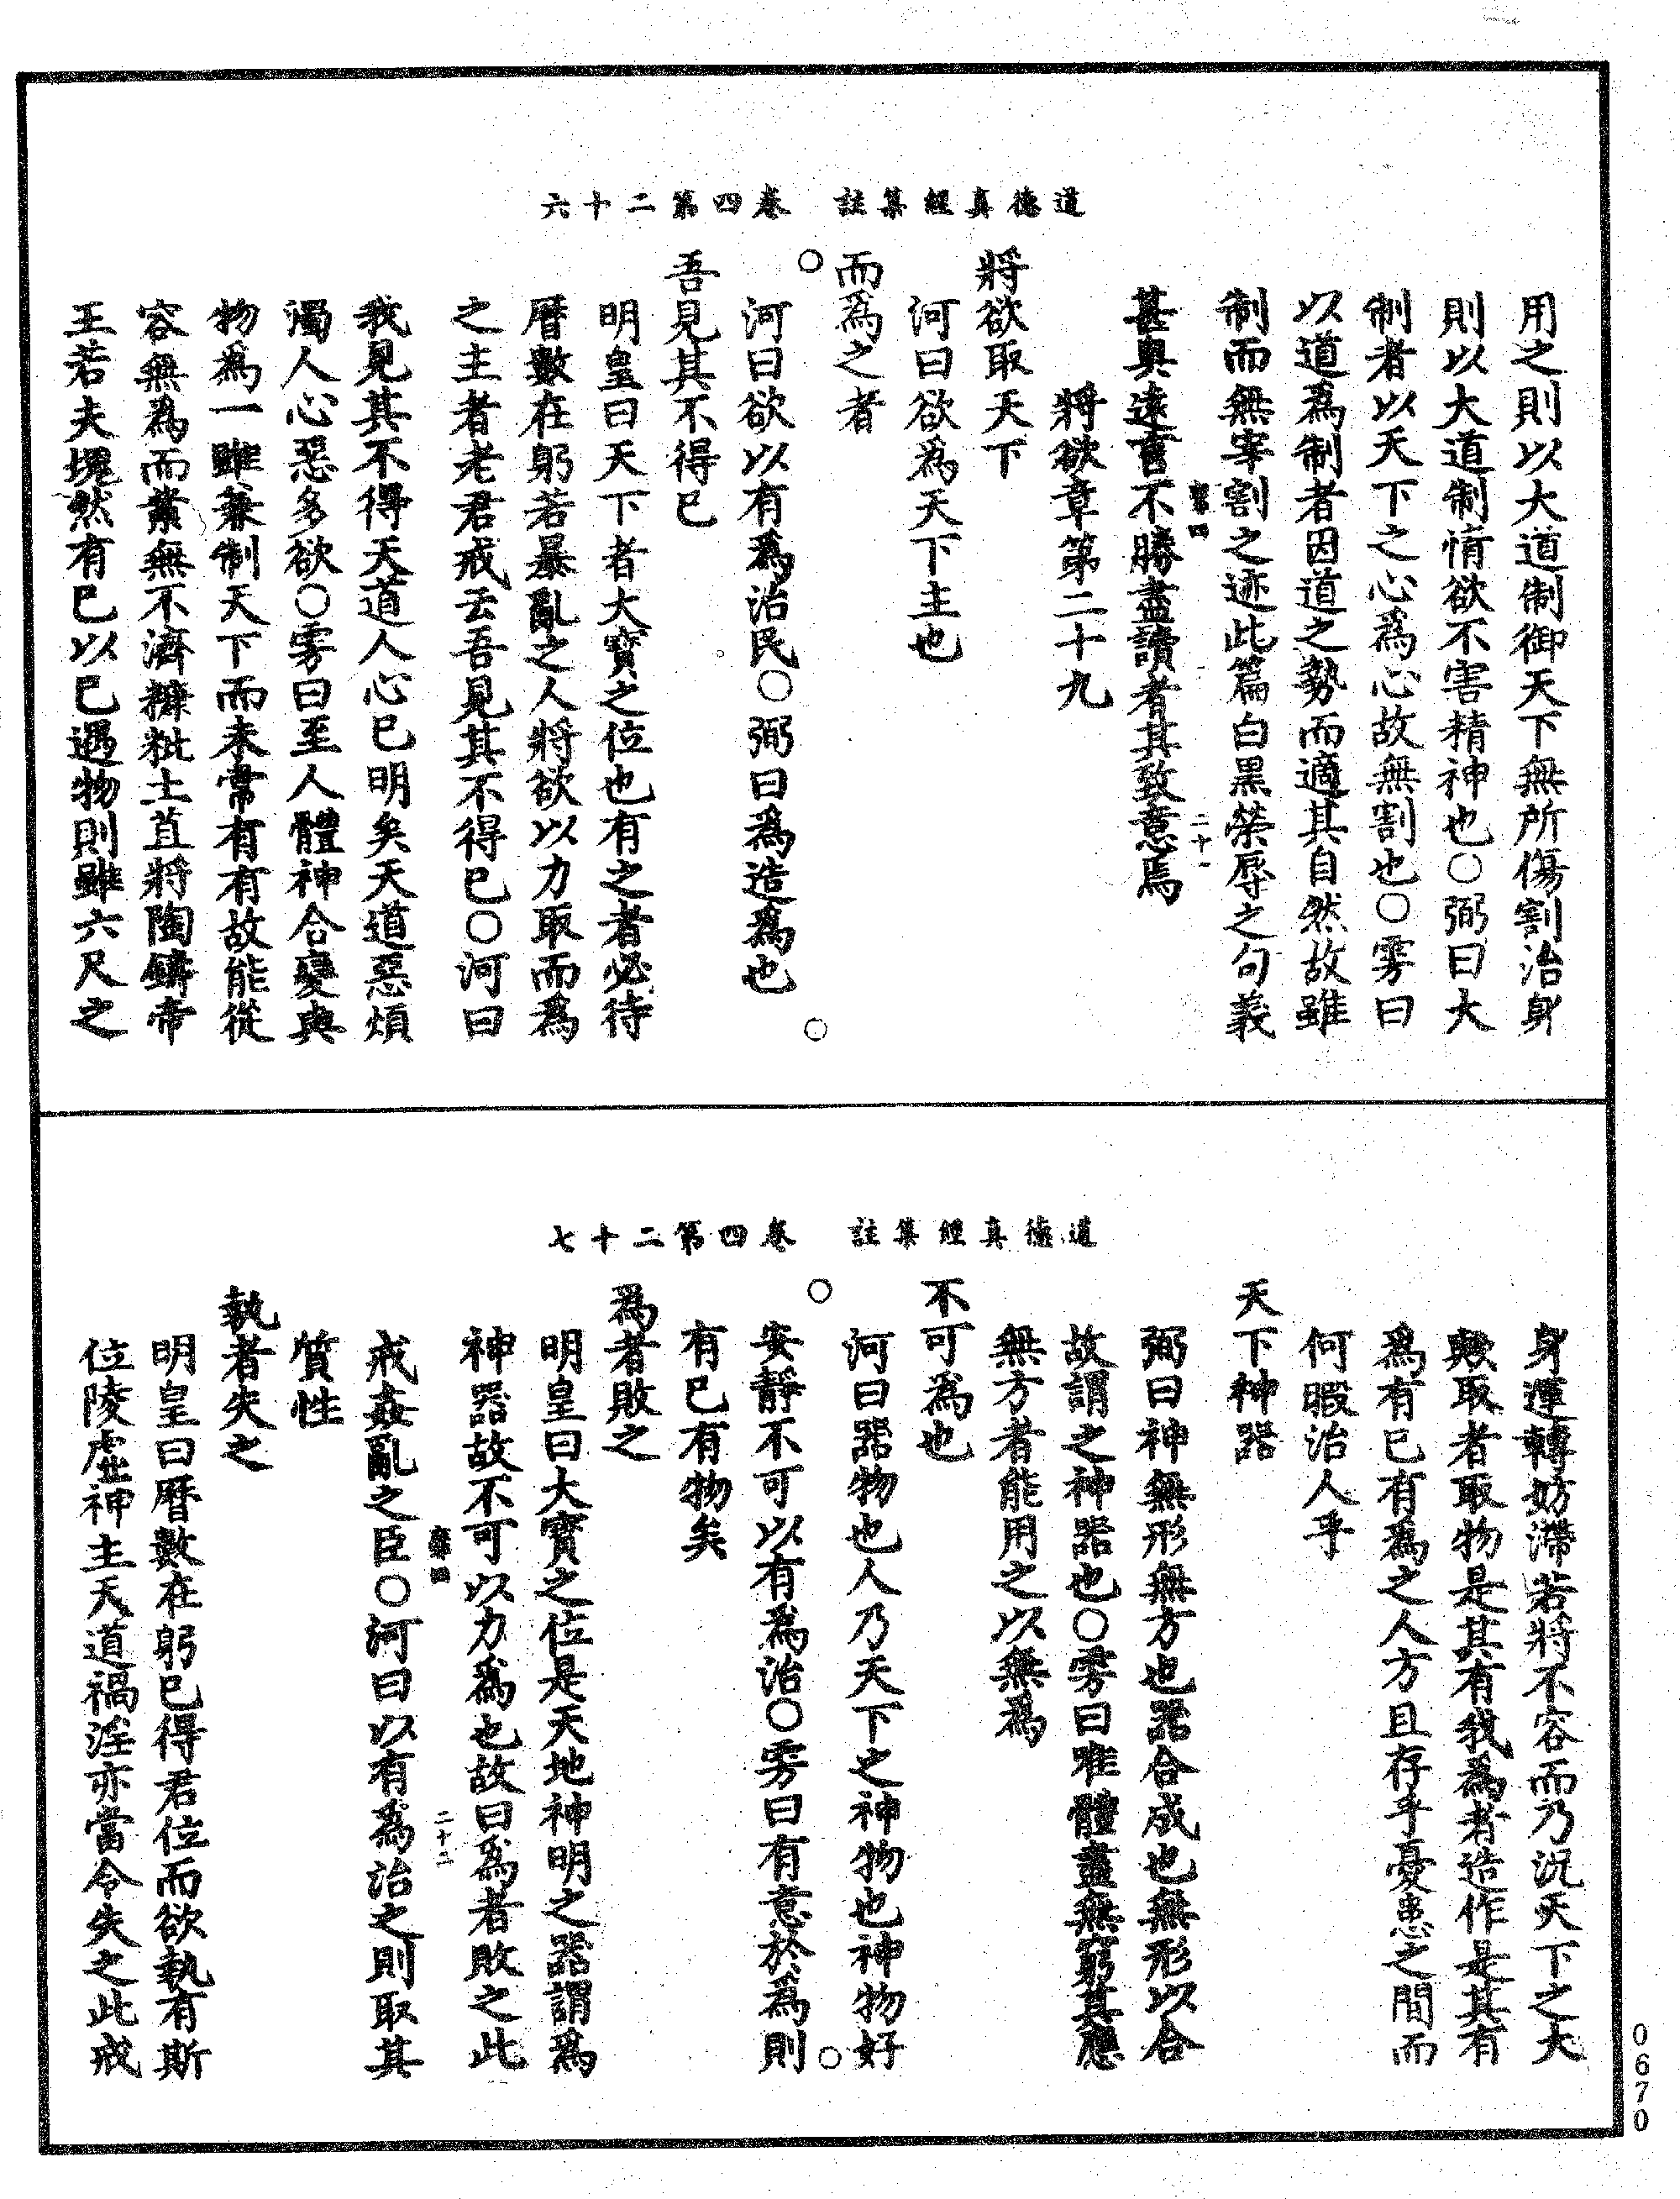 道德真經集註　卷四第二十六
用之則以大道制御天下無所傷割治身
則以大道制情欲不害精神也○弼曰大
制者以天下之心為心故無割也○雱曰
以道為制者因道之勢而適其自然故雖
制而無宰割之迹此篇白黑榮辱之句義
二十一
甚奧遠言不勝盡讀者其致意焉
將欲章第二十九
將欲取天下
河曰欲為天下主也
而為之者
河曰欲以有為治民○弼曰為造為也
吾見其不得已
明皇曰天下者大寶之位也有之者必待
曆數在躬若暴亂之人將欲以力取而為
之主者老君戒云吾見其不得已○河曰
我見其不得天道人心已明矣天道惡煩
濁人心惡多欲○雱曰至人體神合變與
物為一雖兼制天下而未常有有故能從
容無為而業無不濟糠粃土苴將陶鑄帝
王若夫塊然有已以已遇物則雖六尺之
道德真經集註　卷四第二十七
身運轉妨滯若將不容而乃況天下之大
歟取者取物是其有我為者造作是其有
為有已有為之人方且存乎憂患之間而
何暇治人乎
天下神器
弼曰神無形無方也器合成也無形以合
故謂之神器也○雱曰唯體盡無窮其應
無方者能用之以無為
不可為也
河曰器物也人乃天下之神物也神物好
安靜不可以有為治○雱曰有意於為則
有已有物矣
為者敗之
明皇曰大寶之位是天地神明之器謂為
神器故不可以力為也故曰為者敗之此
二十二
戒姦亂之臣○河曰以有為治之則取其
質性
執者失之
明皇曰曆數在躬已得君位而欲執有斯
位陵虐神主天道禍淫亦當令失之此戒
0670